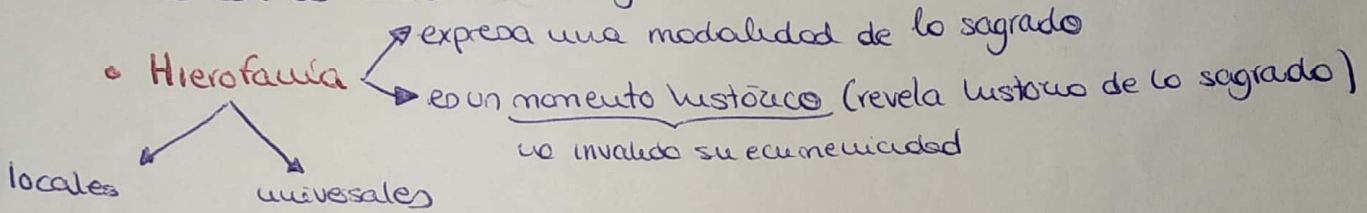 expresa una modalidad de lo sagrado
• Hierofanía
es un momento histórico (revela historia de lo sagrado)
no invalida su ecumenicidad
locales
universales